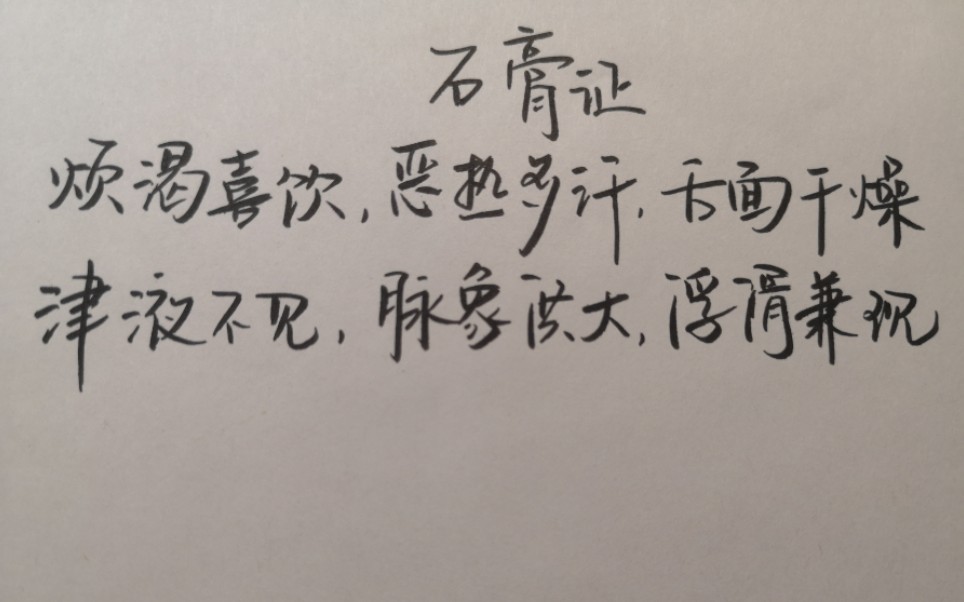 石膏证
烦渴喜饮,恶热多汗,舌面干燥
津液不见,脉象洪大,浮滑兼现